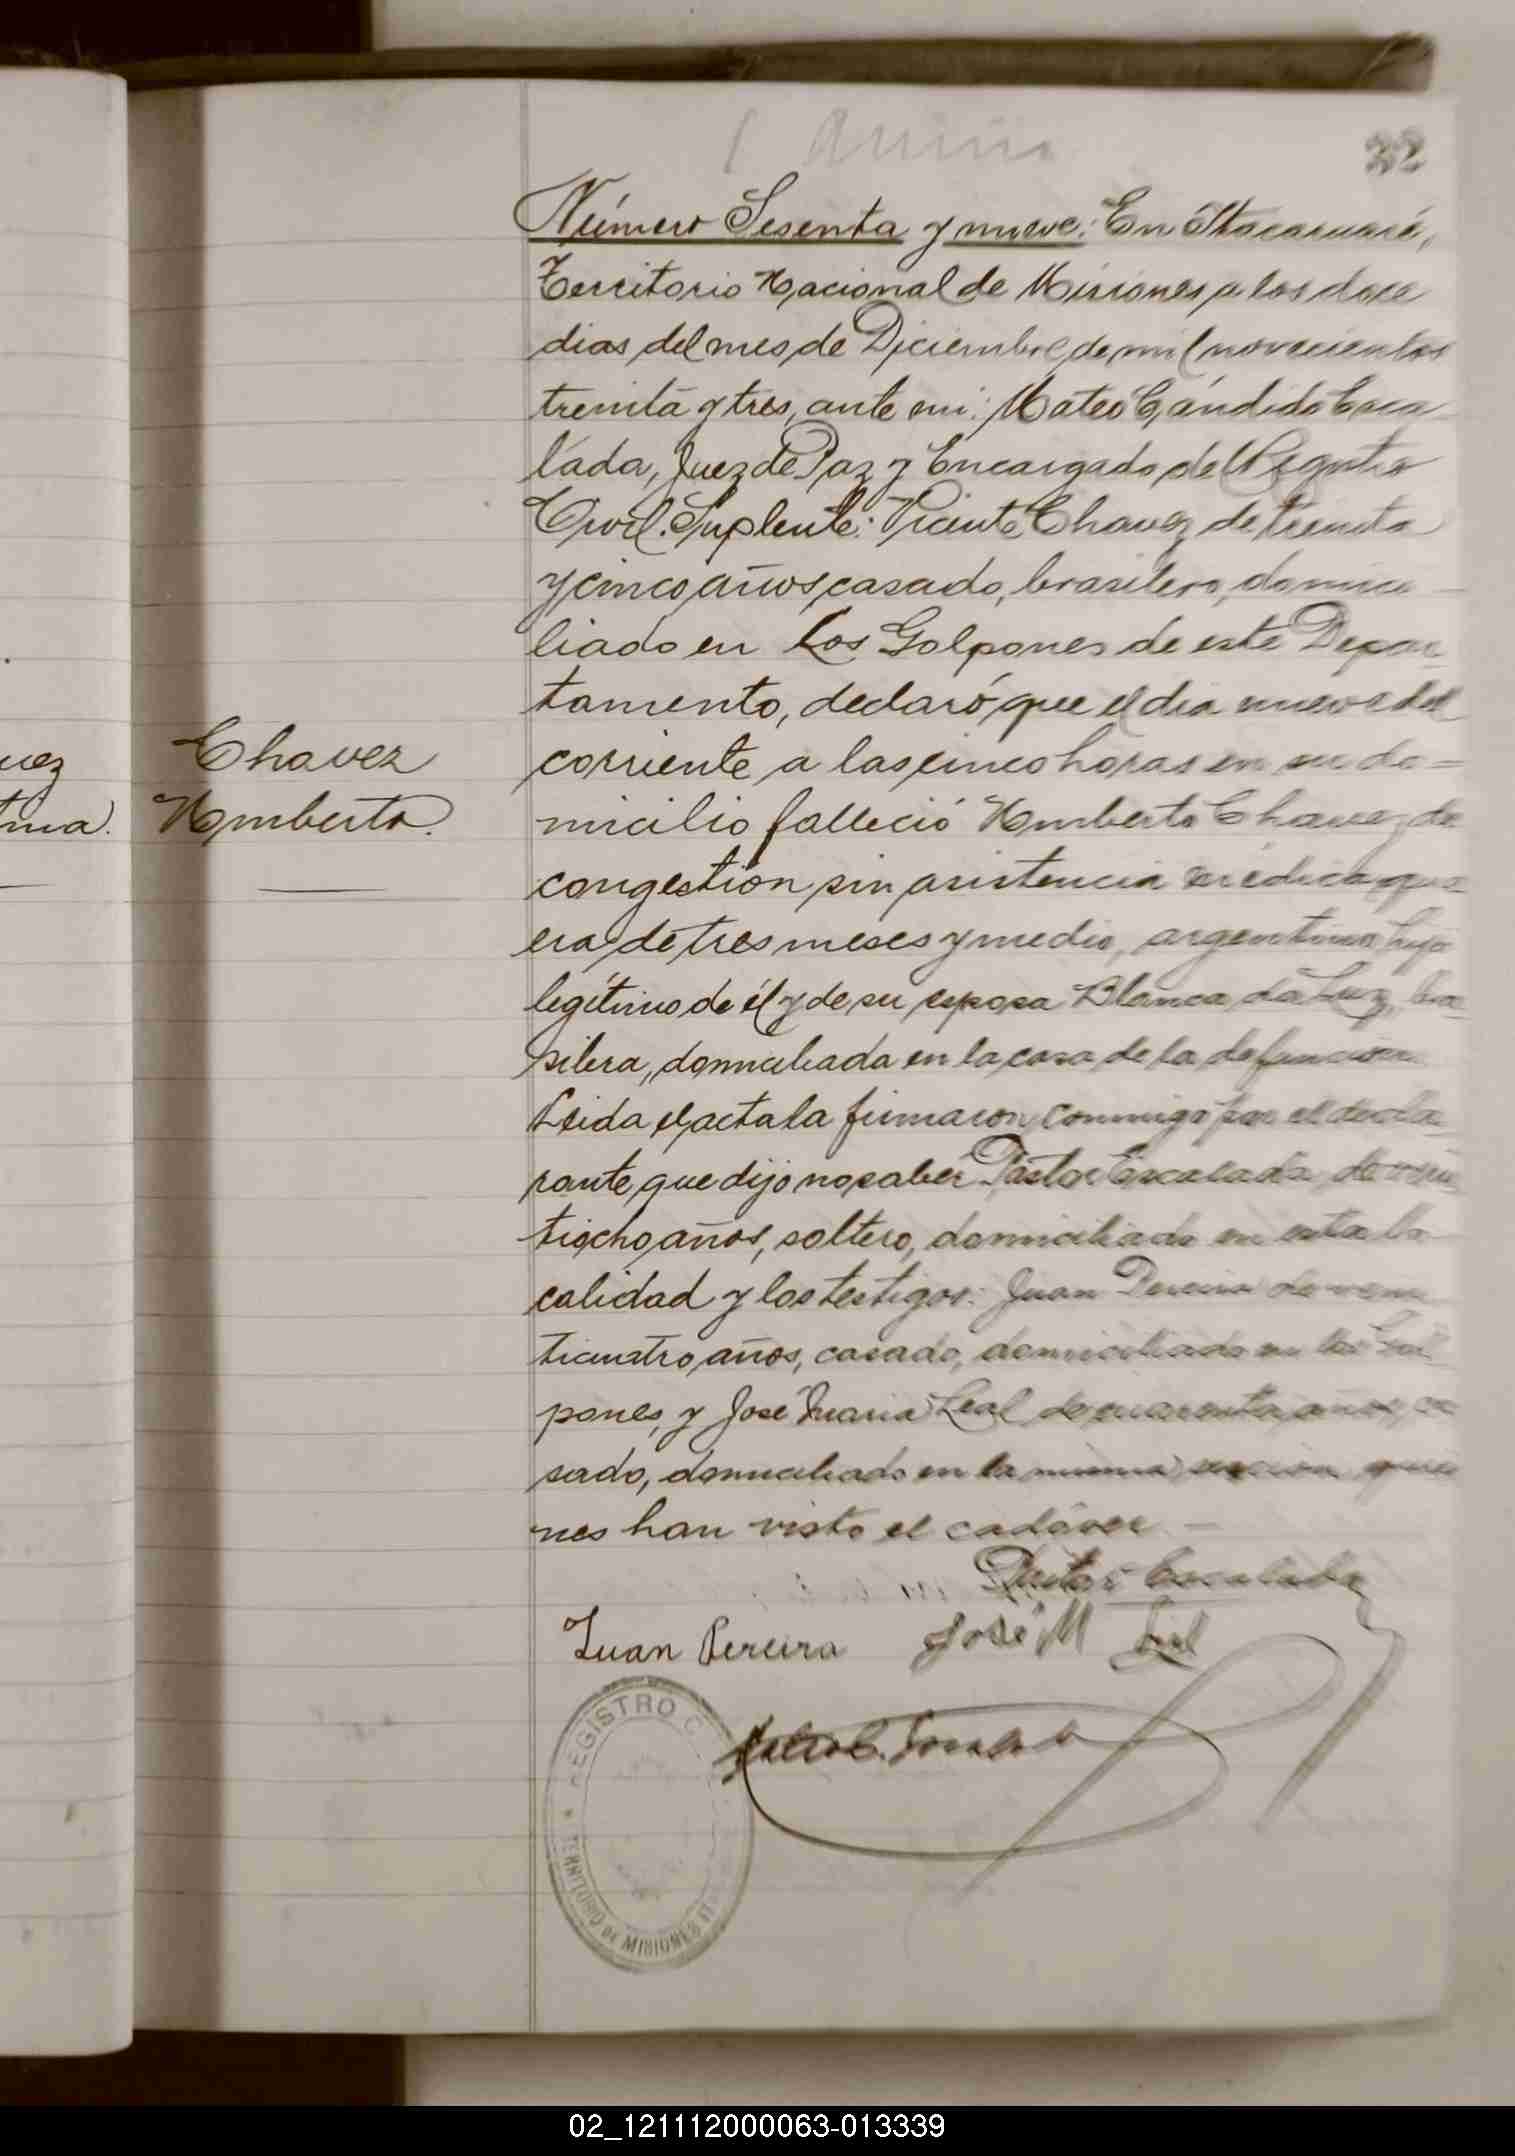 32
Número Sesenta y nueve: En Itacaruaré,
Territorio Nacional de Misiones, a los doce
dias del mes de Diciembre de mil novecientos
treinta y tres, ante mi: Mateo Cándido Esca
lada, Juez de Paz y Encargado del Registro
Civil. Suplente: Vicente Chavez de treinta
y cinco años, casado, brasilero, domici
liado en Los Galpones de este Depar
tamento, declaró, que el dia nueve del
corriente a las cinco horas en su do=
micilio falleció Humberto Chavez, de
congestión sin asistencia médica, que
era de tres meses y medio, argentino, hijo
legítimo de él y de su esposa Blanca da Luz, bra
silera, domiciliada en la casa de la defuncion.
Leida el acta la firmaron conmigo por el decla
rante, que dijo no saber Pastor Escalada, de vein
tiocho años, soltero, domiciliado en esta lo
calidad y los testigos: Juan Pereira de vein
ticuatro años, casado, domiciliado en los Gal
pones, y José Maria Leal de cuarenta años, ca
sado, domiciliado en la misma quie
nes han visto el cadáver
Chavez
Humberto.
uez
tina.
Pastor Escalada
Juan Pereira José M Leal
Mateo C. Escalada
REGISTRO C
TERRITORIO DE MISIONES
02_121112000063-013339